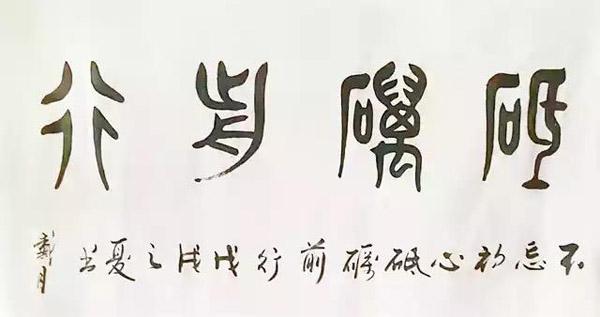 砥礪前行
不忘初心砥礪前行戊戌之夏書
戴月